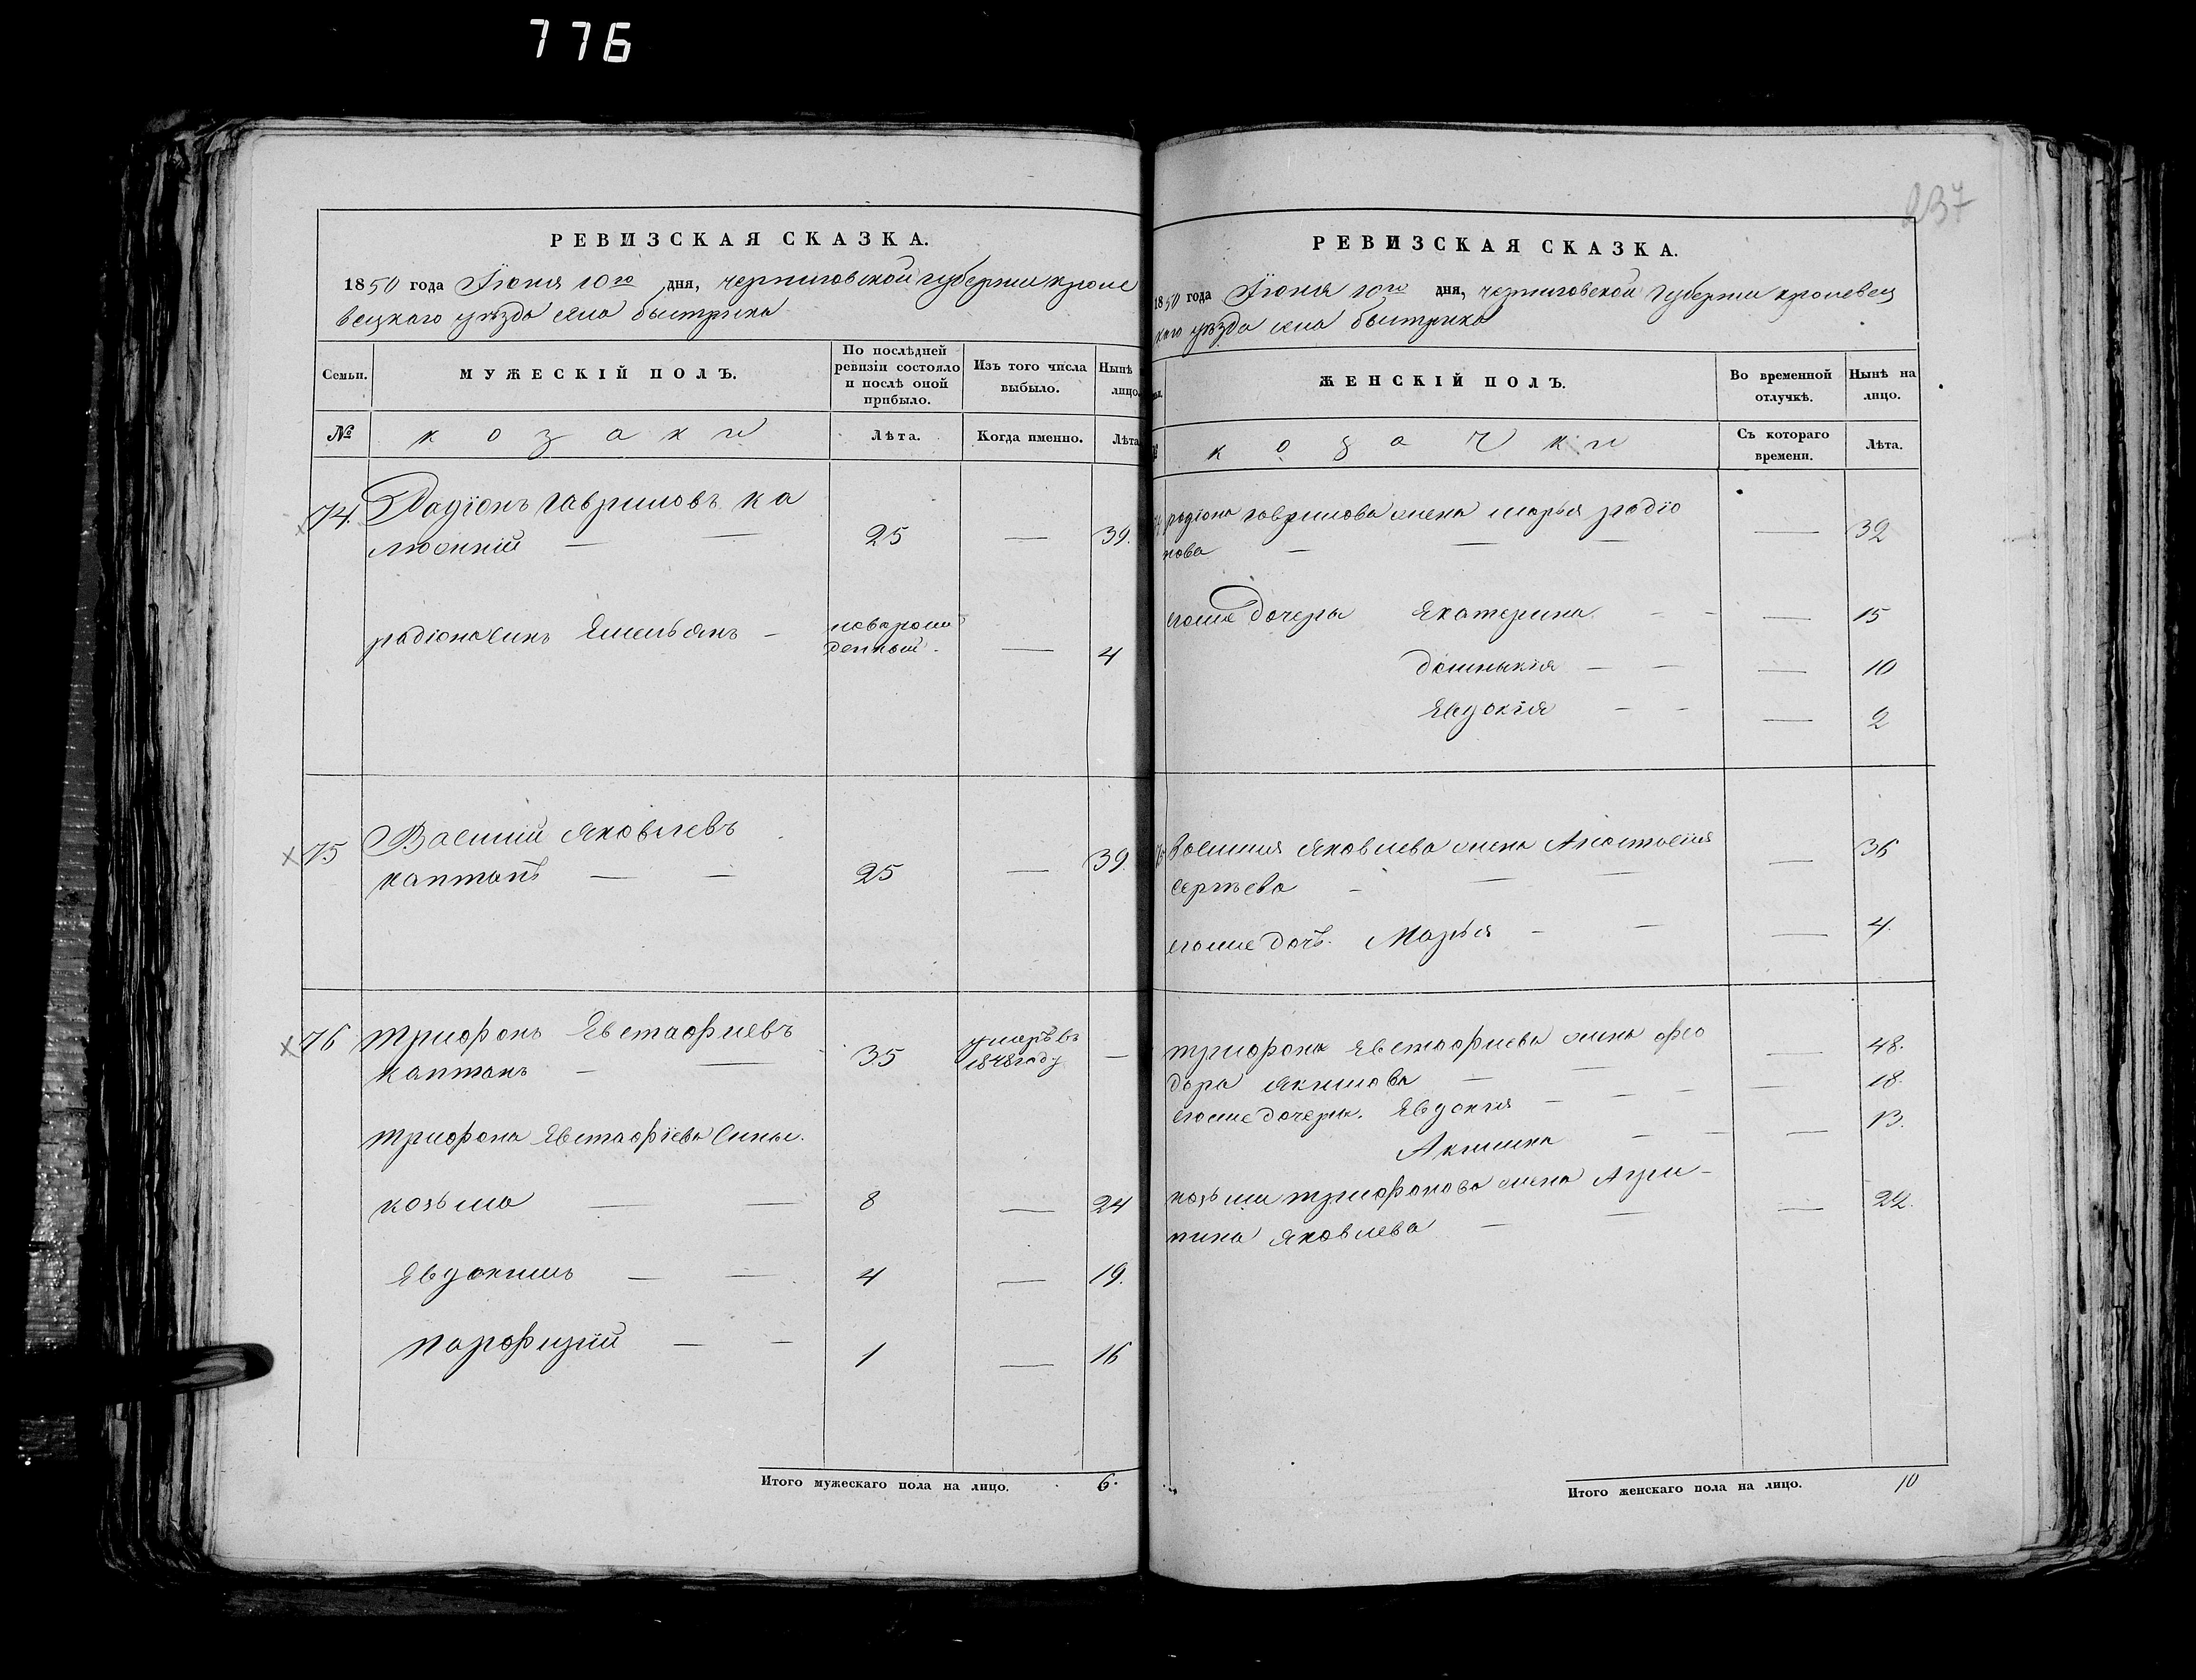 776
237
РЕВИЗСКАЯ СКАЗКА.
1850 года Іюня 10го дня, черниговской губерніи кроле
вецкаго уѣзда села быстрика
Семьи.
МУЖЕСКІЙ ПОЛЪ.
По послѣдней ревизіи состояло и послѣ оной прибыло.
Изъ того числа выбыло.
Нынѣ лицо.
№
козаки
Лѣта.
Когда именно.
Лѣта
74. Радіонъ гавриловъ ка
люжній — — 25 — 39.
радіона сынъ Емельянъ — новорож
денный. — 4
75 Василій яковлевъ
каптанъ — — 25 — 39.
76 трифонъ Евстафиевъ
каптанъ — — 35 умеръ въ 1848 году —
трифона Евстафіева сыны.
козьма — — 8 — 24
Евдокимъ — — 4 — 19.
парфирій — — 1 — 16
Итого мужескаго пола на лицо. 6.
РЕВИЗСКАЯ СКАЗКА.
1850 года Іюня 10го дня, черниговской губерніи кролевец
каго уѣзда села быстрика
ЖЕНСКІЙ ПОЛЪ.
Во временной отлучкѣ.
Нынѣ на лицо.
козачки
Съ котораго времени.
Лѣта.
радіона гаврилова жена марья радіо
нова — — — — 32
егоже дочеры Екатерина — — — 15
домникія — — — 10
Евдокія — — — 2
Василия яковлева жена Анастасія — 36
сергѣева — — —
егоже дочь. Марья — — — 4.
трифона Евстафиева жена фео — 48.
дора якимова — — — 18.
егоже дочеры. Евдокія — — —
Акилина — — — 13.
козьми трифонова жена Агри-
пина яковлева — — — 22.
Итого женскаго пола на лицо. 10